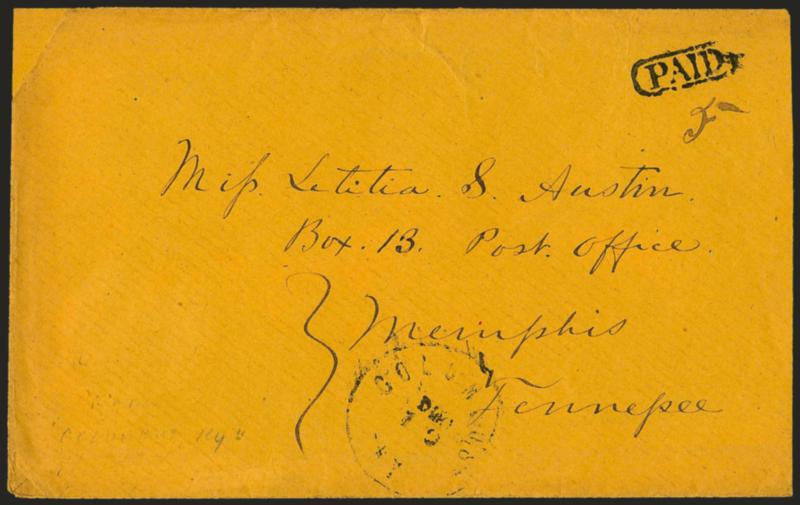 PAID
5
Miſs. Letitia. S. Austin.
Box. 13. Post. Office.
Memphis
Tenneſsee
COLUMBUS
KY.